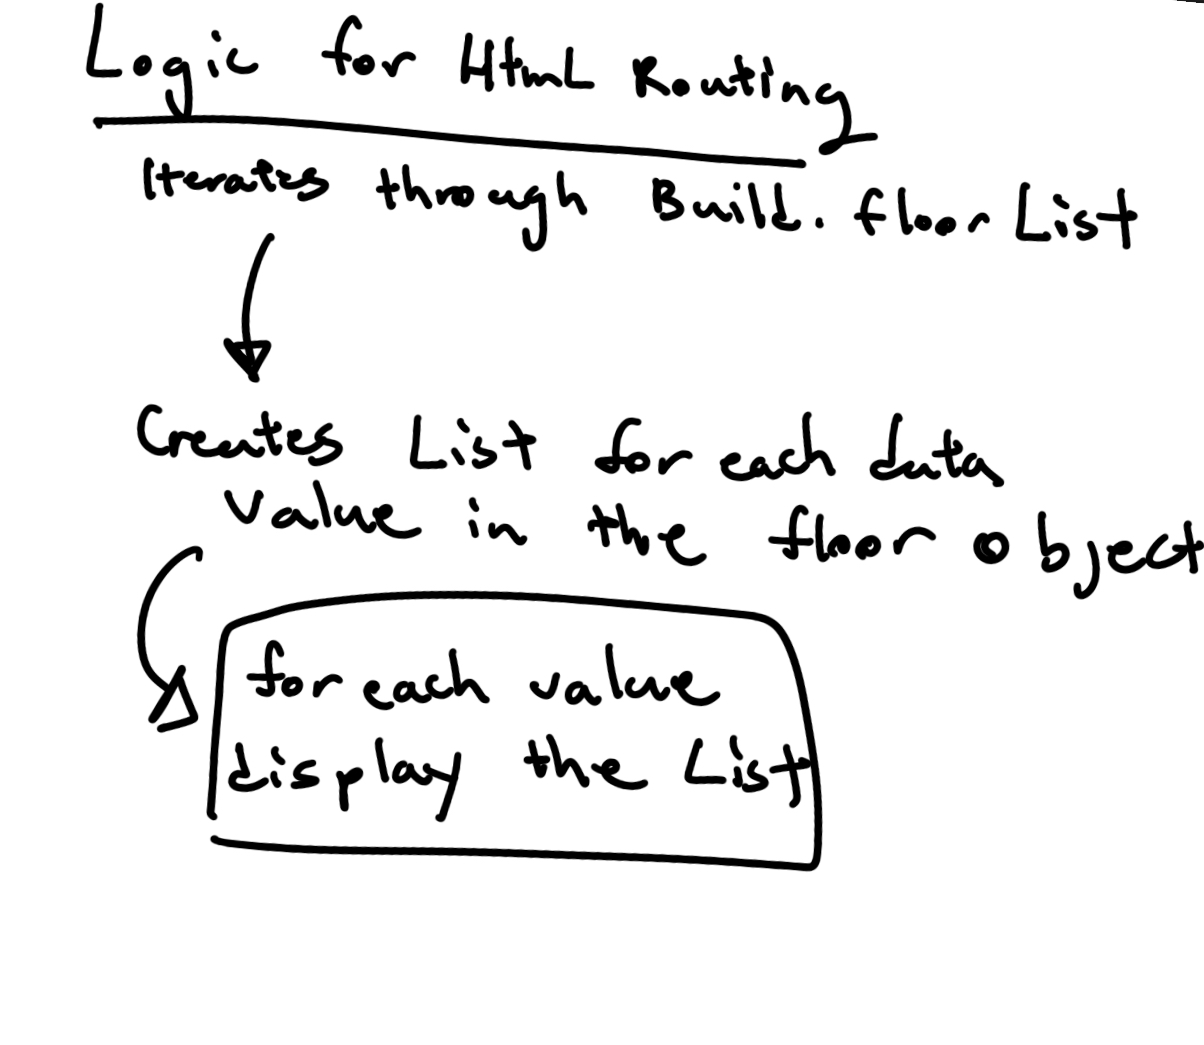 Logic for HtmL Routing
Iterates through Build. floor List
Creates List for each data
value in the floor object
for each value
display the List